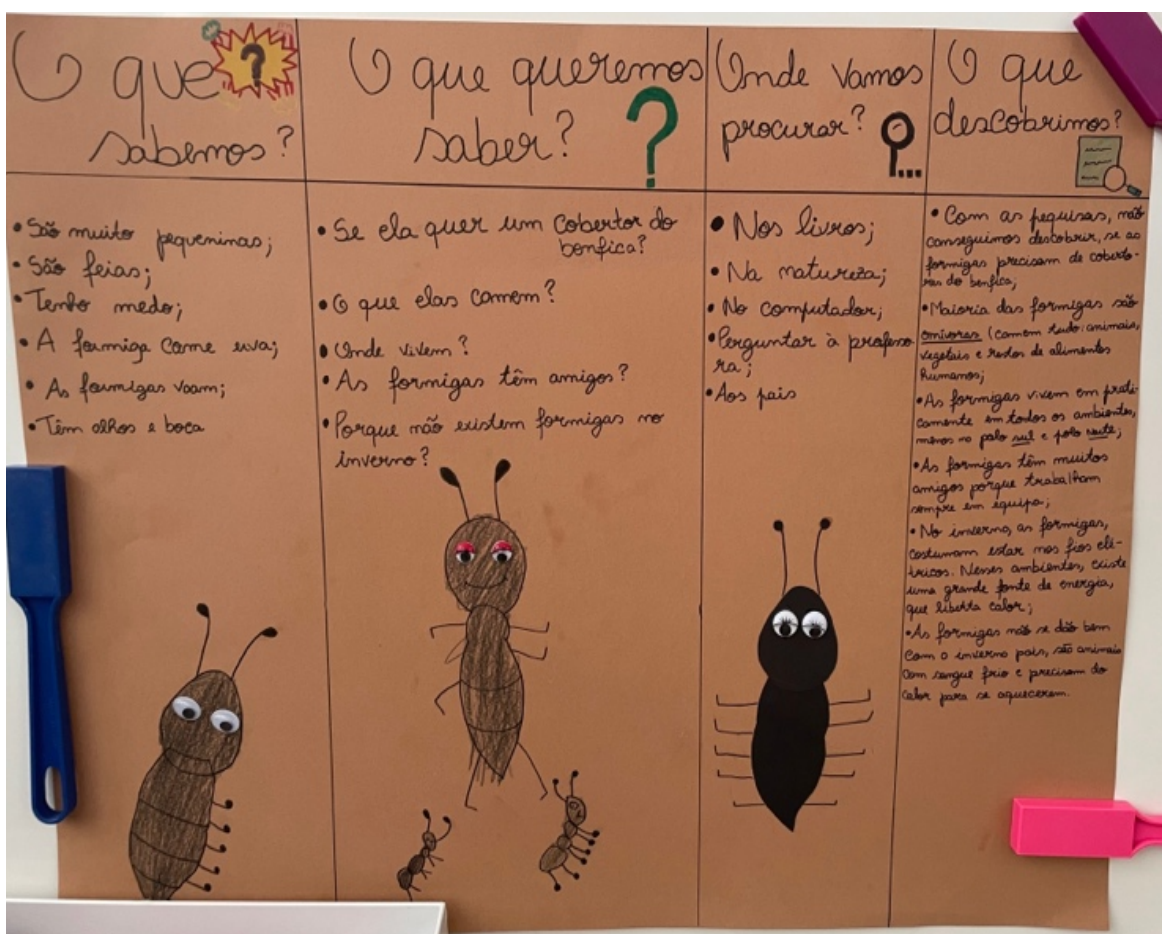 O que
sabemos?
• São muito pequeninas;
• São feias;
• Tenho medo;
• A formiga come uva;
• As formigas voam;
• Têm olhos e boca
O que queremos
saber?
?
• Se ela quer um cobertor do
bonfica?
• O que elas comem?
• Onde vivem?
• As formigas têm amigos?
• Porque não existem formigas no
inverno?
Onde vamos
procurar?
• Nos livros;
• Na natureza;
• No computador;
• Perguntar à professo
ra;
• Aos pais
O que
descobrimos?
• Com as pequisas, não
conseguimos descobrir, se as
formigas precisam de coberto-
res do benfica;
• Maioria das formigas são
omívoras (comem tudo: animais,
vegetais e restos de alimentos
humanos;
• As formigas vivem em prati-
camente em todos os ambientes,
menos no polo sul e polo norte;
• As formigas têm muitos
amigos porque trabalham
sempre em equipa;
• No inverno, as formigas,
costumam estar nos fios elé-
tricos. Nesses ambientes, existe
uma grande fonte de energia,
que liberta calor;
• As formigas não se dão bem
com o inverno pois, são animais
com sangue frio e precisam do
calor para se aquecerem.